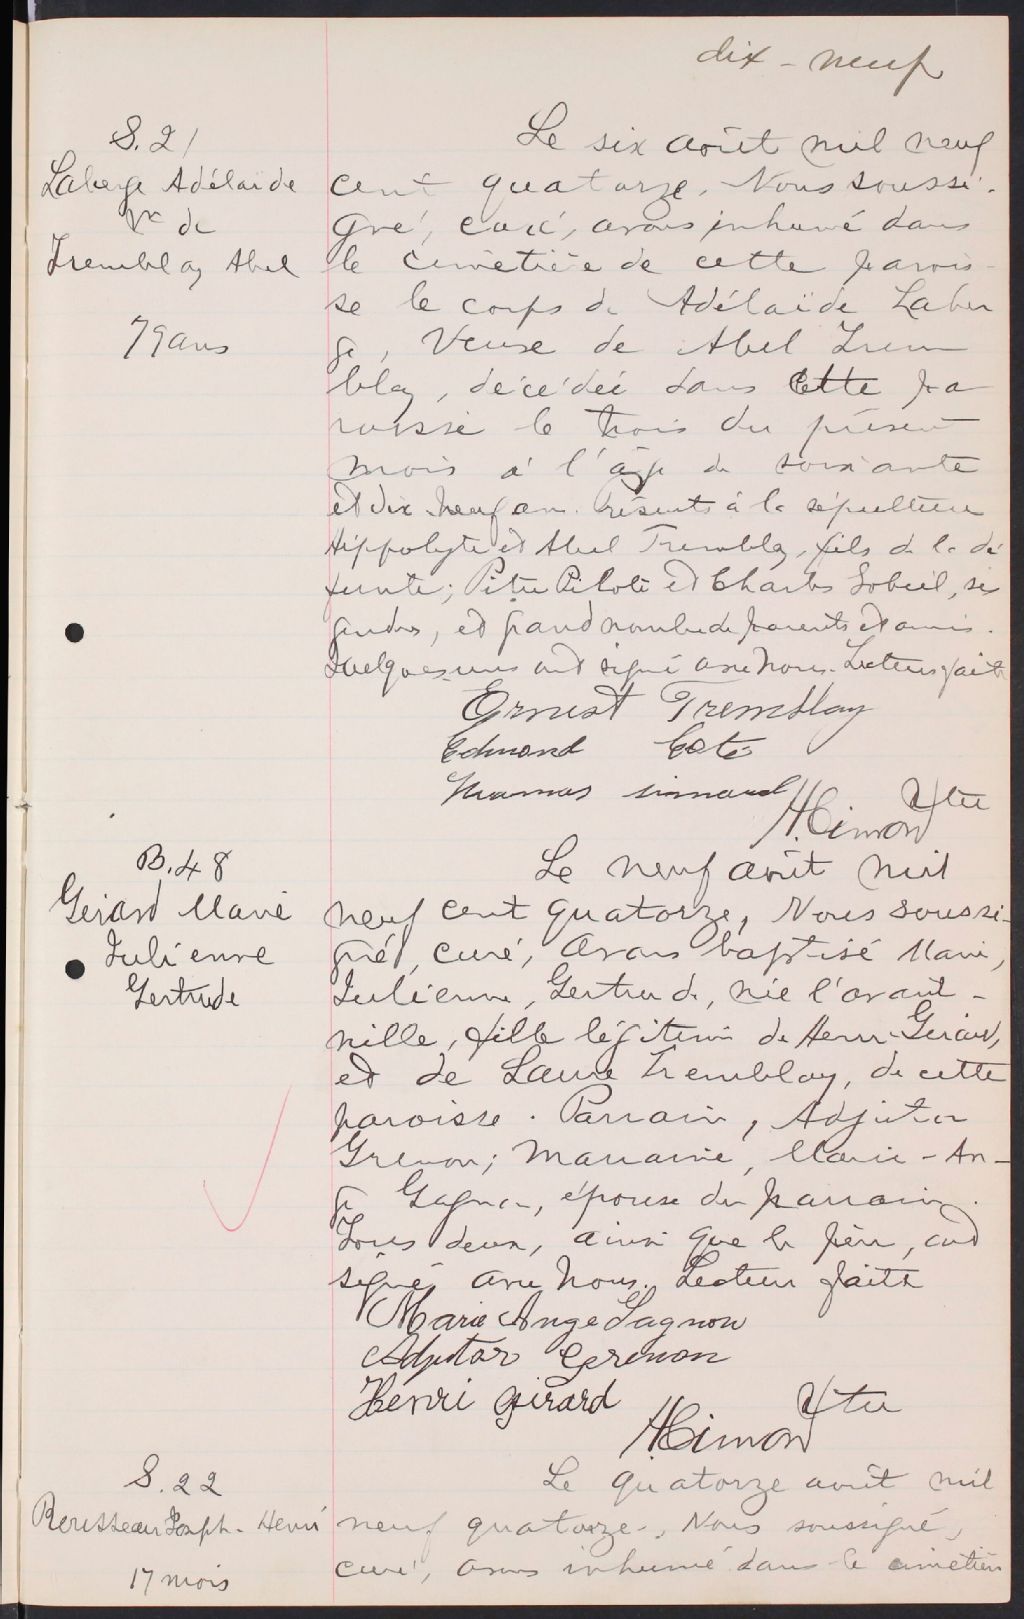 dix-neuf
S. 21
Laberge Adélaïde
Vve de
Tremblay Abel
79 ans
Le six août mil neuf
cent quatorze, Nous soussi-
gné, curé, avons inhumé dans
le cimetière de cette parois-
se le corps de Adélaïde Laber
ge, Veuve de Abel Trem
blay, décédée dans cette pa
roisse le trois du présent
mois à l'âge de soixante
et dix-neuf ans. Présents à la sépulture
Hippolyte et Abel Tremblay, fils de la dé
funte; Pitre Pilote et Charles Sobeil, ses
gendres, et grand nombre de parents et amis.
Quelques-uns ont signé avec nous. Lecture faite
Ernest Tremblay
Edmond Coté
Thomas Simard
H. Cimon Ptre
B. 48
Girard Marie
Julienne
Gertrude
Le neuf août mil
neuf cent quatorze, Nous soussi-
gné, curé, avons baptisé Marie,
Julienne, Gertrude, née l'avant-
veille, fille légitime de Henri Girard,
et de Laure Tremblay, de cette
paroisse. Parrain, Adjutor
Grenon; marraine, Marie-An-
ge Gagnon, épouse du parrain.
Tous deux, ainsi que le père, ont
signé avec nous. Lecture faite
Marie Ange Gagnon
Adjutor Grenon
Henri Girard
H. Cimon Ptre
S. 22
Joseph-Henri
17 mois
Le quatorze août mil
neuf quatorze, Nous soussigné,
curé, avons inhumé dans le cimetière